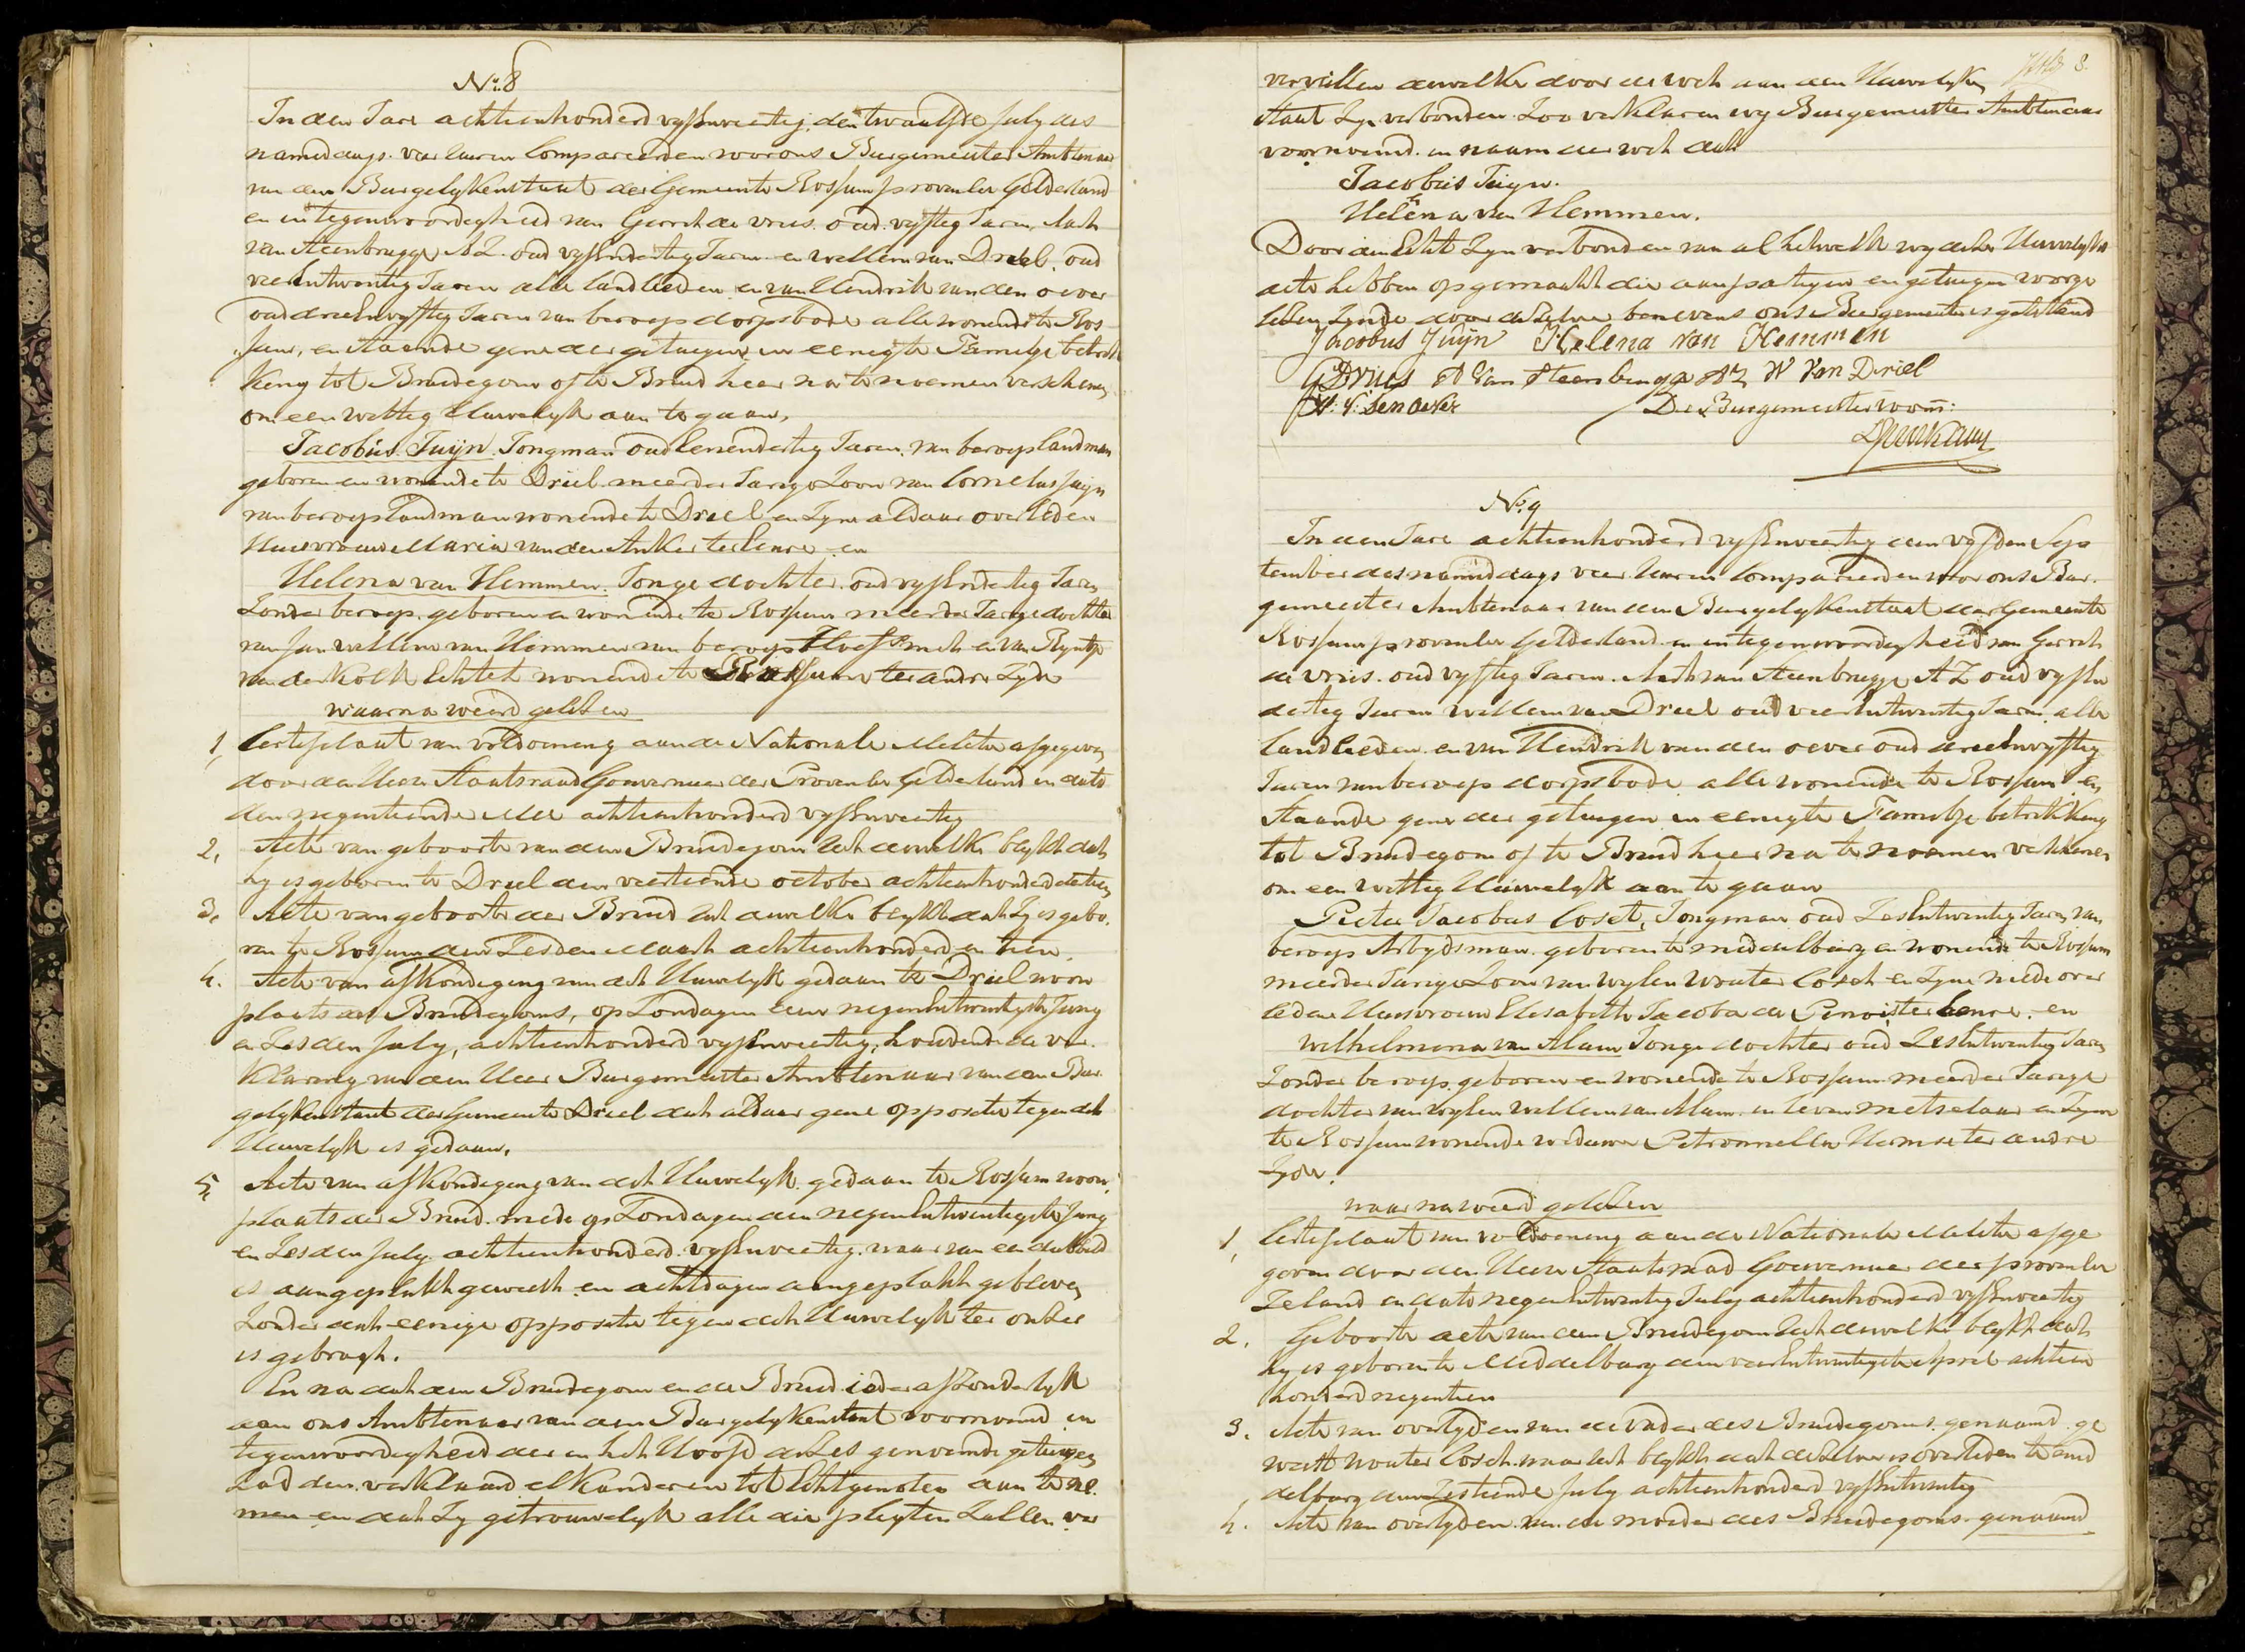 No. 8
In den Jare achttienhonderd vyfenveertig, den twaalfde July des
namiddags vier uuren Compareerden voor ons Burgemeester Ambtenaar
van den Burgelykenstaat der Gemeente Rossum provencie Gelderland
en in tegenwoordigheid van Gerrit de vries oud vyftig Jaren, Aart
van Steenbrugge AZ. oud vyfendertig Jaren en willem van Driel, oud
vierentwentig Jaren alle landlieden en van Hendrik van den oever
oud drieenvyftig Jaren van beroep dorpsbode alle wonende te Ros
sum, en staande gene der getuigen in eenigte Familje betrek
king tot Bruidegom of te Bruid hier na te noemen verschenen
om een wettig Huwelyk aan te gaan,
Jacobus Tuijn Jongman oud eenendertig Jaren, van beroep landman
geboren en wonende te Driel meerder Jarige Zoon van Cornelus Tuijn
van beroep landman wonende te Driel en Zyne aldaar overleden
Huisvrouw Maria van den Anker ter Eenre en
Helena van Hemmen Jonge dochter oud vyfendertig Jaren
Zonder beroep, geboren en wonende te Rossum meerder Jarige dochter
van Jan willem van Hemmen van beroep Hoefsmit en van Ryntje
van der Kolk Echtel wonende te Rossum ter andre Zyde
waarna wierd gelezen
1, Certeficaat van voldoening aan de Nationale Melitie afgegeven
door den Heere Staatsraad Gouverneur der Provencie Gelderland in dato
den negentiende Mei achttienhonderd vyfenveertig
2, Acte van geboorte van den Bruidegom uit dewelke blykt dat
hy is geboren te Driel den veertiende october achttienhonderd dertien,
3. Acte van geboorte der Bruid uit dewelke blykt dat Zy is gebo.
ren te Rossum den Zesden Maart achttienhonderd en tien,
4. Acte van afkondeging van dit Huwelyk gedaan te Driel woon
plaets des Bruidegoms, op Zondagen den negenentwentigste Juny
en Zesden July, achttienhonderd vyfenveertig, houdende de ver.
klaring van den Heer Burgemeester Ambtenaar van den Bur
gelykenstaat der Gemeente Driel dat aldaar gene oppositie tegen dit
Huwelyk is gedaan,
5, Acte van afkondeging van dit Huwelyk gedaan te Rossum woon
plaats der Bruid mede op Zondagen den negenentwentigste Juny
en Zesden July achttienhonderd vyfenveertig waar van een dubbeld
is aangeplakt geweest en achtdagen aangeplakt gebleven
Zonder dat eenige oppositie tegen dit Huwelyk ter onzer
is gebragt.
En na dat den Bruidegom en de Bruid ieder afzonderlyk
aan ons Ambtenaar van den Burgelykenstaat voornoemd in
tegenwoordigheid der in het Hoofd dezes genoemde getuigen
hadden verklaard elkanderen tot Echtgenoten aan te ne
men en dat Zy getrouwelyk alle die plegten Zullen ver
8.
vervullen dewelke door de wet aan den Huwelyken
Staat Zyn verbonden Zoo verklaren wy Burgemeester Ambtenaar
voornoemd in naam der wet dat
Jacobus Tuijn.
Helena van Hemmen.
Door den Echt Zyn verbonden van al hetwelk wy deze Huwelyks
acte hebben opgemaakt die aan partyen en getuigen voorge
lezen Zynde door dezelve benevens ons Burgemeester is getekend
Jacobus Tuijn Helena van Hemmen
G D Vries A van Steenbrugge AZ W van Driel
H: V: den oever De Burgemeester voorn:
No. 9
In den Jare achttienhonderd vyfenveertig den vyfden Sep
tember des namiddags vier uuren Compareerden voor ons Bur.
gemeester Ambtenaar van den Burgelykenstaat der Gemeente
Rossum provencie Gelderland en in tegenwoordigheid van Gerrit
de vries oud vyftig Jaren Aart van Steenbrugge AZ oud vyfen
dertig Jaren willem van Driel oud vierentwentig Jaren alle
landlieden en van Hendrik van den oever oud drieenvyftig
Jaren van beroep dorpsbode alle wonende te Rossum en
staande gene der getuigen in eenigte Familje betrekking
tot Bruidegom of te Bruid hier na te noemen verschenen
om een wettig Huwelyk aan te gaan
Pieter Jacobus Coset, Jongman oud Zesentwentig Jaren van
beroep Arbydsman geboren te middelburg en wonende te Rossum
meerder Jarige Zoon van wylen wouter Coset en Zyne mede over
ledene Huisvrouw Elisabeth Jacoba de Pinoi ter Eenre, en
Welhelmena van Alem Jonge dochter oud Zesentwentig Jaren
Zonder beroep geboren en wonende te Rossum meerder Jarige
dochter van wylen willem van Alem in leven metselaar en Zyne
te Rossum wonende weduwe Petronnella Hermse ter andre
Zyde.
waarna wierd gelezen
1, Certeficaat van voldoening aan de Nationale Melitie afge
geven door den Heere Staatsraad Gouverneur der provencie
Zeland in dato negenentwentig July achttienhonderd vyfenveertig
2. Geboorte acte van den Bruidegom uit dewelke blykt dat
hy is geboren te Middelburg den vierentwentigste April achttien
honderd negentien
3. Acte van overlyden van de vader des Bruidegoms genaamd ge
weest wouter Coset waar uit blykt dat dezelve is overleden te mid
delburg den Zestiende July achttienhonderd vyfentwentig
4. Acte van overlyden van de moeder des Bruidegoms genaamd